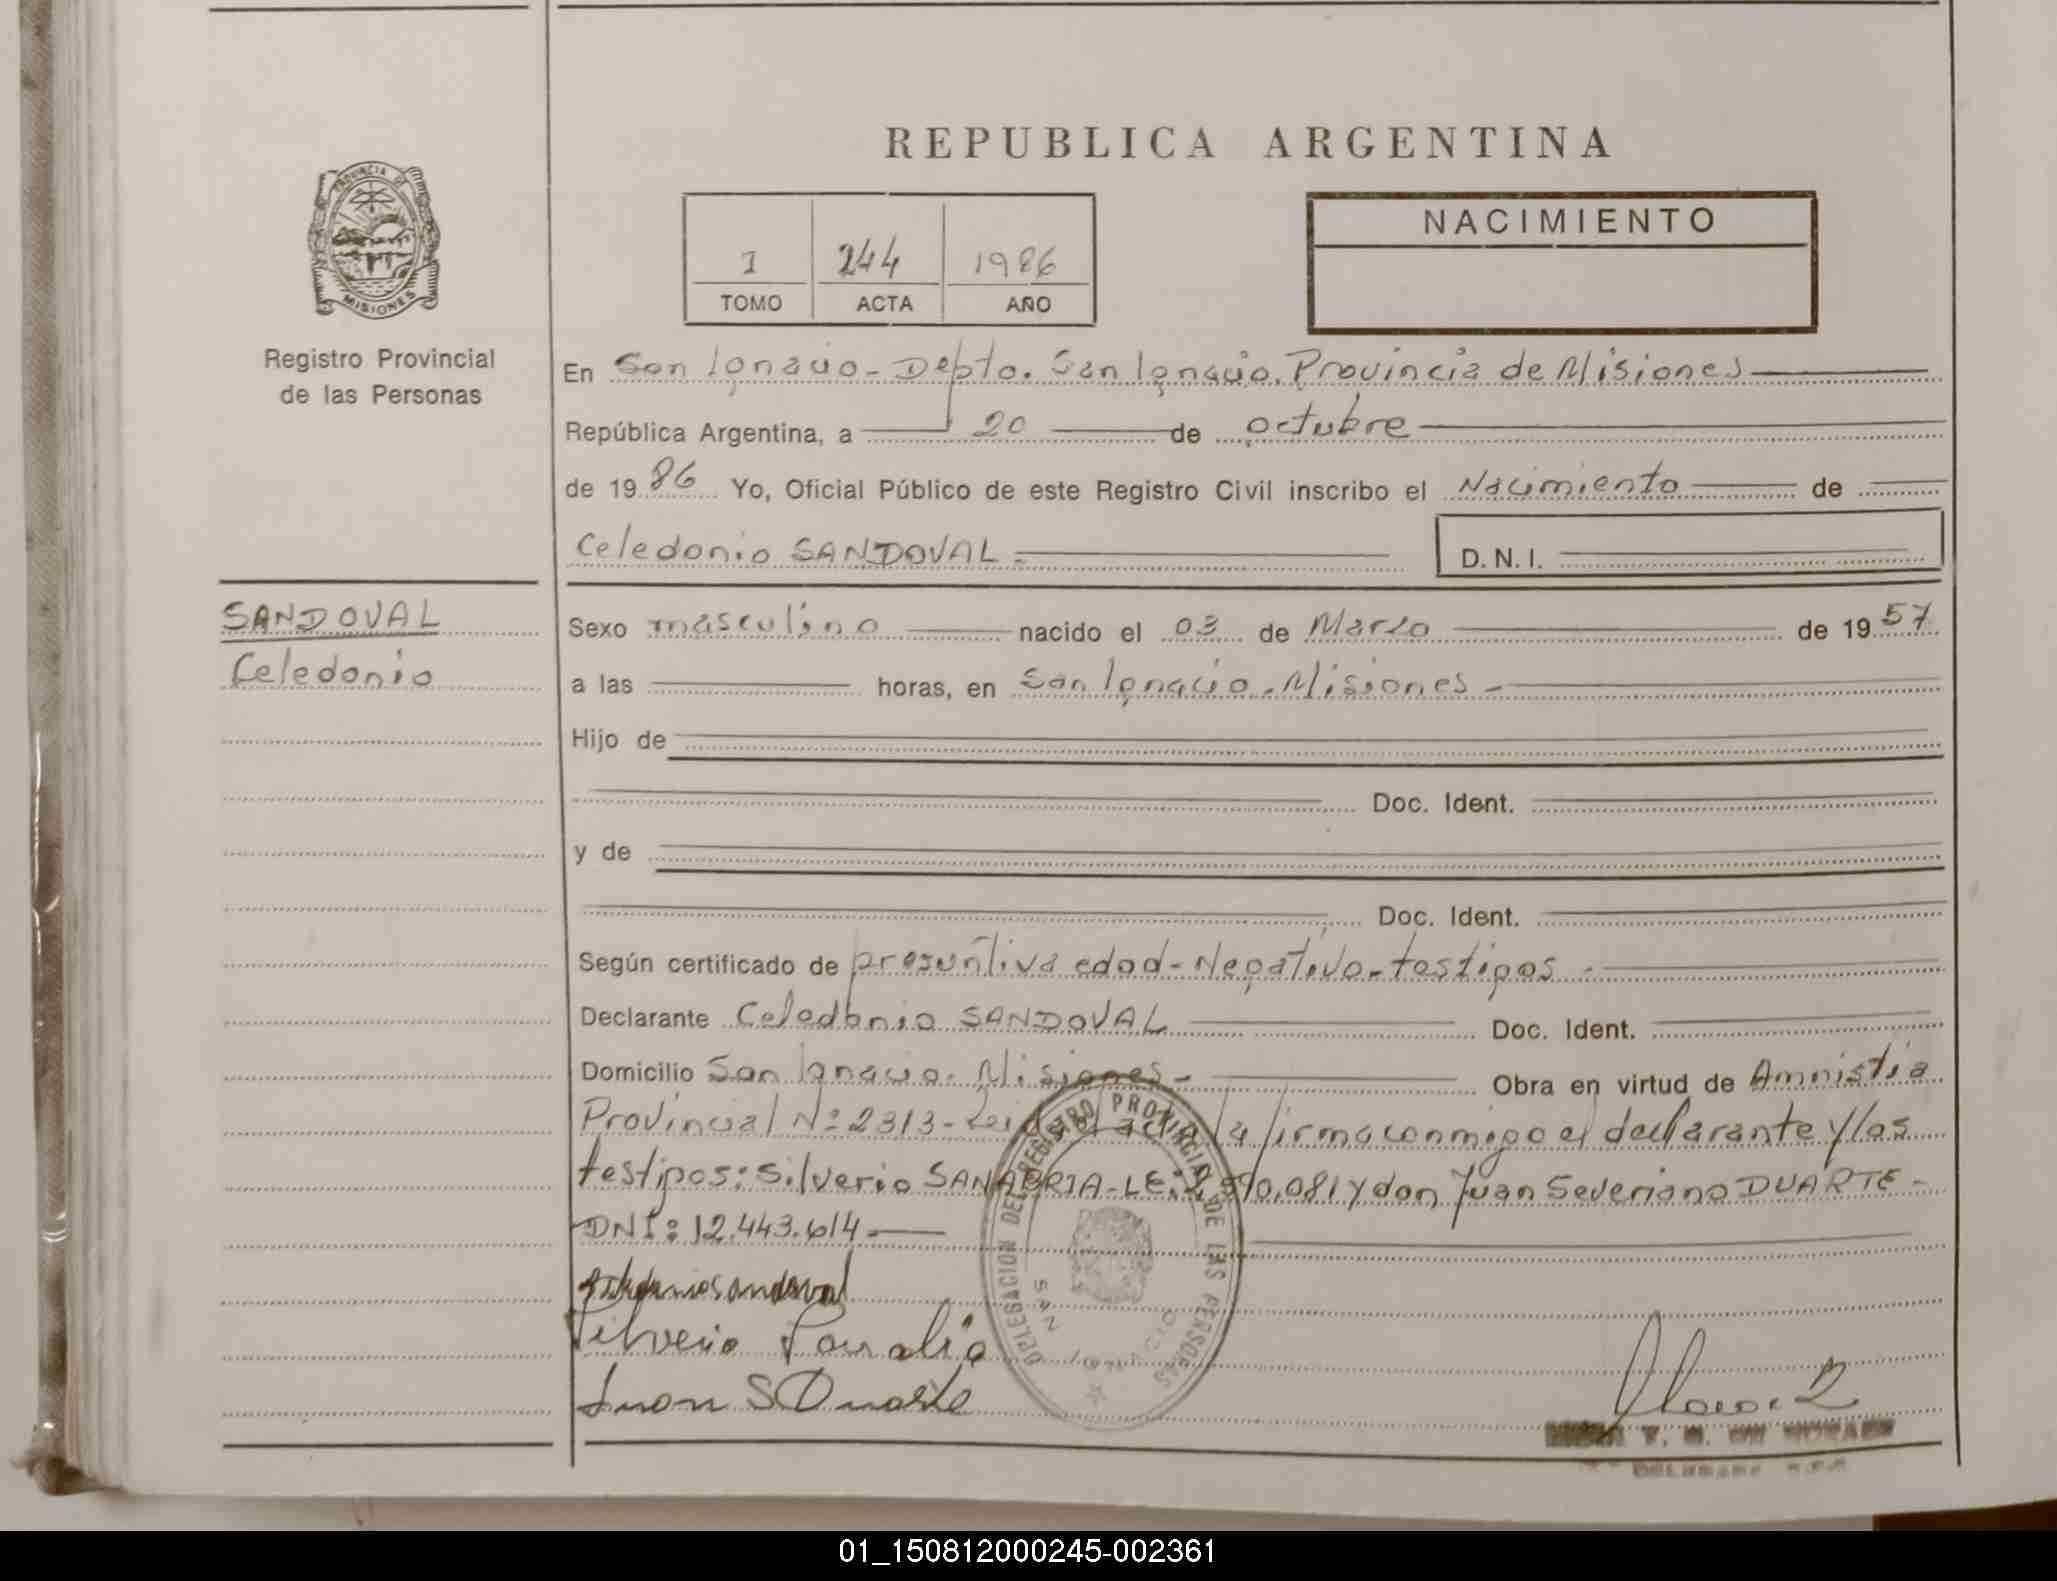 REPUBLICA ARGENTINA
PROVINCIA DE
MISIONES
Registro Provincial
de las Personas
1 244 1986
TOMO ACTA AÑO
NACIMIENTO
En San Ignacio - Depto. San Ignacio. Provincia de Misiones
República Argentina, a 20 de octubre
de 1986 Yo, Oficial Público de este Registro Civil inscribo el Nacimiento de
Celedonio SANDOVAL - D.N.I.
SANDOVAL
Celedonio
Sexo masculino nacido el 03 de Marzo de 1957
a las horas, en San Ignacio - Misiones -
Hijo de
Doc. Ident.
y de
Doc. Ident.
Según certificado de presuntiva edad - Negativo - testigos -
Declarante Celedonio SANDOVAL Doc. Ident.
Domicilio San Ignacio - Misiones - Obra en virtud de Amnistía
Provincial Nº 2313 - Leida el acta la firma conmigo el declarante y los
testigos: Silverio SANABRIA - LE: 590.081 y don Juan Severiano DUARTE -
DNI: 12.443.614
Celedonio Sandoval
Silverio Sanabria
Juan S Duarte
DELEGACION DEL REGISTRO PROVINCIAL DE LAS PERSONAS
SAN IGNACIO
01_150812000245-002361